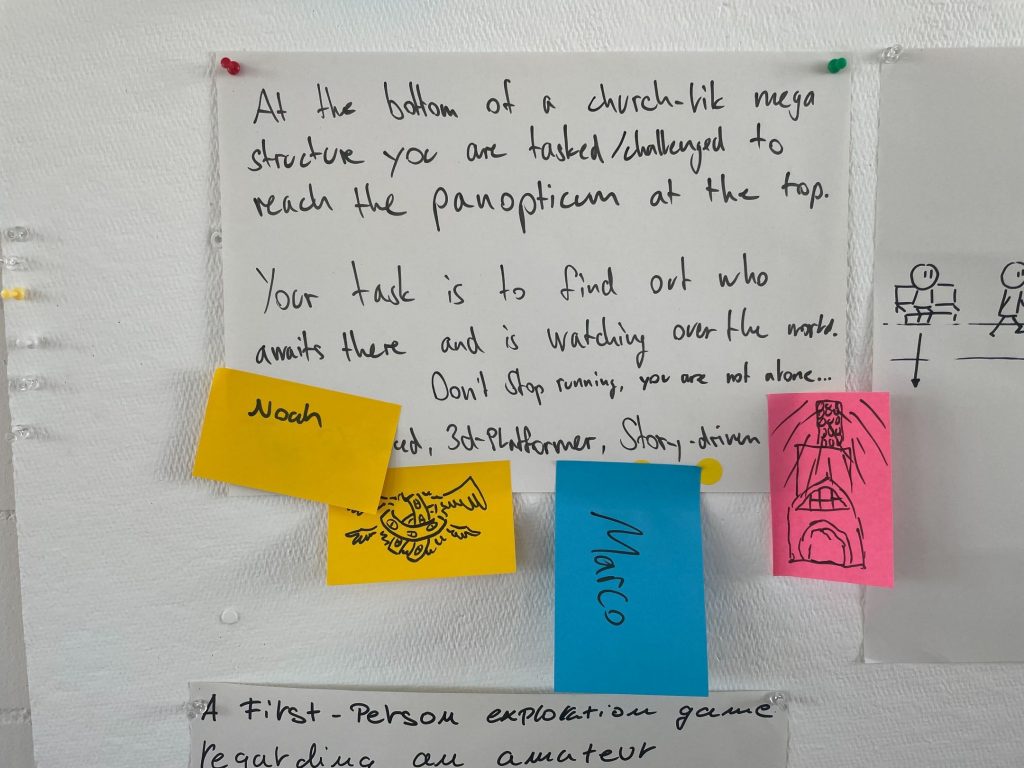 At the bottom of a church-lik mega
structure you are tasked/challenged to
reach the panopticum at the top.
Your task is to find out who
awaits there and is watching over the world.
Don't stop running, you are not alone...
3d-Platformer, Story-driven
Noah
Marco
A First-Person exploration game
regarding an amateur